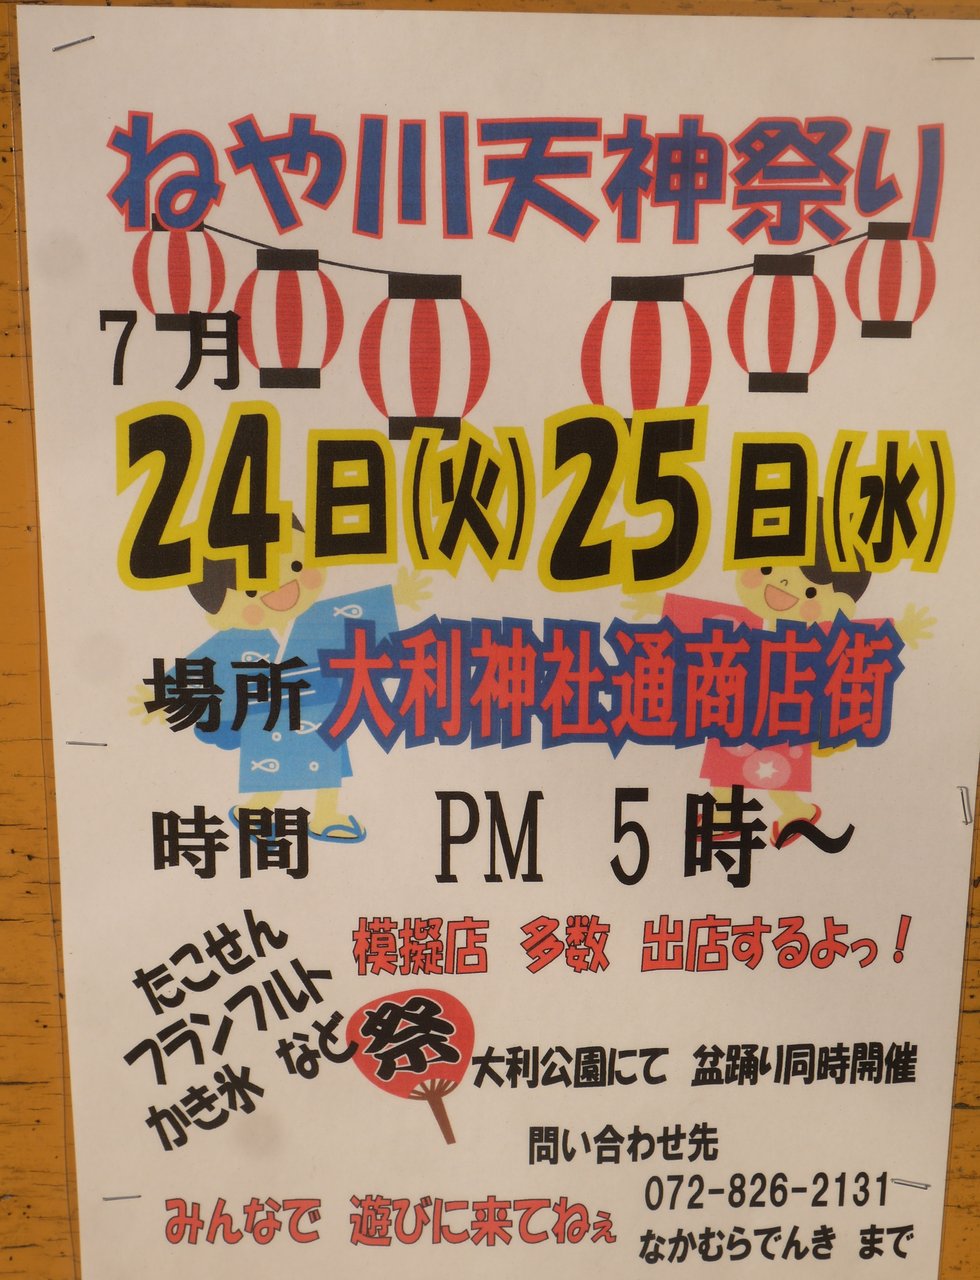 ねや川天神祭り
7月
24日(火)25日(水)
場所 大利神社通商店街
時間 PM 5時～
模擬店 多数 出店するよっ！
たこせん
フランフルト
かき氷 など
祭
大利公園にて 盆踊り同時開催
問い合わせ先
072-826-2131
なかむらでんき まで
みんなで 遊びに来てねぇ